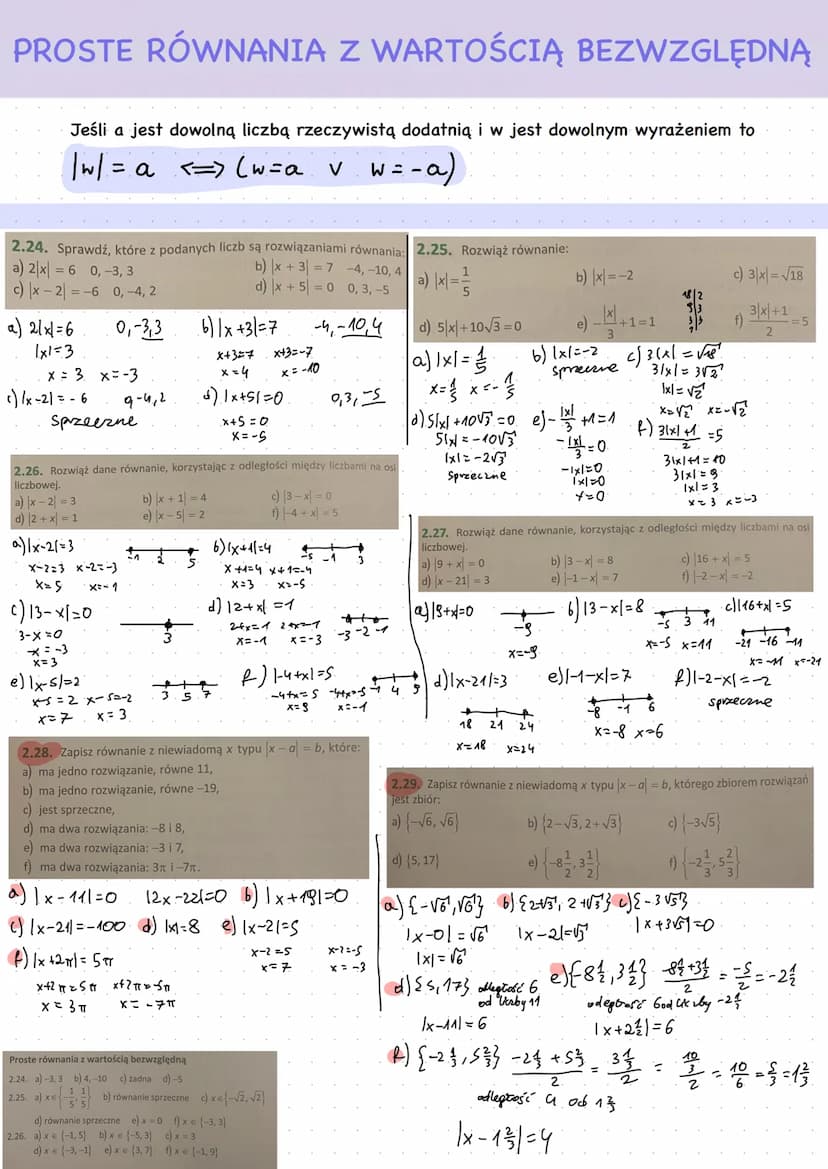 PROSTE RÓWNANIA Z WARTOŚCIĄ BEZWZGLĘDNĄ
Jeśli a jest dowolną liczbą rzeczywistą dodatnią i w jest dowolnym wyrażeniem to
|w| = a <=> (w=a v w=-a)
2.24. Sprawdź, które z podanych liczb są rozwiązaniami równania:
a) 2|x| = 6 0, −3, 3 b) |x + 3| = 7 −4, −10, 4
c) |x − 2| = −6 0, −4, 2 d) |x + 5| = 0 0, 3, −5
a) 2|x|=6 0,-3,3 b) |x+3|=7 -4,-10,4
|x|=3 x+3=7 x+3=-7
x=3 x=-3 x=4 x=-10
c) |x-2|=-6 d) |x+5|=0 0,3,-5
Sprzeczne x+5=0
x=-5
2.25. Rozwiąż równanie:
a) |x| = 1/5 b) |x| = −2 c) 3|x| = √18
d) 5|x| + 10√3 = 0 e) −|x|/3 + 1 = 1 f) (3|x| + 1)/2 = 5
a) |x|=1/5 b) |x|=-2 c) 3|x|=√18
x=1/5 x=-1/5 sprzeczne 3|x|=3√2
|x|=√2
x=√2 x=-√2
d) 5|x|+10√3=0 e) -|x|/3+1=1 f) (3|x|+1)/2=5
5|x|=-10√3 -|x|/3=0 3|x|+1=10
|x|=-2√3 -|x|=0 3|x|=9
Sprzeczne |x|=0 |x|=3
x=0 x=3 x=-3
2.26. Rozwiąż dane równanie, korzystając z odległości między liczbami na osi
liczbowej.
a) |x − 2| = 3 b) |x + 1| = 4 c) |3 − x| = 0
d) |2 + x| = 1 e) |x − 5| = 2 f) |−4 + x| = 5
a) |x-2|=3 -1 2 5 b) |x+1|=4 -5 -1 3
x-2=3 x-2=-3 x+1=4 x+1=-4
x=5 x=-1 x=3 x=-5
c) |3-x|=0 3 d) |2+x|=1 -3 -2 -1
3-x=0 2+x=1 2+x=-1
-x=-3 x=-1 x=-3
x=3
e) |x-5|=2 3 5 7 f) |-4+x|=5 -1 4 9
x-5=2 x-5=-2 -4+x=5 -4+x=-5
x=7 x=3 x=9 x=-1
2.27. Rozwiąż dane równanie, korzystając z odległości między liczbami na osi
liczbowej.
a) |9 + x| = 0 b) |3 − x| = 8 c) |16 + x| = 5
d) |x − 21| = 3 e) |−1 − x| = 7 f) |−2 − x| = −2
a) |9+x|=0 -9 b) |3-x|=8 -5 3 11 c) |16+x|=5
x=-9 x=-5 x=11 -21 -16 -11
x=-11 x=-21
d) |x-21|=3 e) |-1-x|=7 f) |-2-x|=-2
18 21 24 -8 -1 6 sprzeczne
x=18 x=24 x=-8 x=6
2.28. Zapisz równanie z niewiadomą x typu |x − a| = b, które:
a) ma jedno rozwiązanie, równe 11,
b) ma jedno rozwiązanie, równe −19,
c) jest sprzeczne,
d) ma dwa rozwiązania: −8 i 8,
e) ma dwa rozwiązania: −3 i 7,
f) ma dwa rozwiązania: 3π i −7π.
a) |x-11|=0 |2x-22|=0 b) |x+19|=0
c) |x-21|=-100 d) |x|=8 e) |x-2|=5
f) |x+2π|=5π x-2=5 x-2=-5
x+2π=5π x+2π=-5π x=7 x=-3
x=3π x=-7π
2.29. Zapisz równanie z niewiadomą x typu |x − a| = b, którego zbiorem rozwiązań
jest zbiór:
a) {−√6, √6} b) {2−√3, 2+√3} c) {−3√5}
d) {5, 17} e) {−8 1/2, 3 1/2} f) {−2 1/3, 5 2/3}
a) {-√6,√6} b) {2-√3, 2+√3} c) {-3√5}
|x-0|=√6 |x-2|=√3 |x+3√5|=0
|x|=√6
d) {5,17} odległość 6 e) {-8 1/2, 3 1/2} (-8 1/2 + 3 1/2)/2 = -5/2 = -2 1/2
od liczby 11 odległość 6 od liczby -2 1/2
|x-11|=6 |x+2 1/2|=6
f) {-2 1/3, 5 2/3} (-2 1/3 + 5 2/3)/2 = (3 1/3)/2 = (10/3)/2 = 10/6 = 5/3 = 1 2/3
odległość 4 od 1 2/3
|x-1 2/3|=4
Proste równania z wartością bezwzględną
2.24. a) −3, 3 b) 4, −10 c) żadna d) −5
2.25. a) x ∈ {−1/5, 1/5} b) równanie sprzeczne c) x ∈ {−√2, √2}
d) równanie sprzeczne e) x = 0 f) x ∈ {−3, 3}
2.26. a) x ∈ {−1, 5} b) x ∈ {−5, 3} c) x = 3
d) x ∈ {−3, −1} e) x ∈ {3, 7} f) x ∈ {−1, 9}